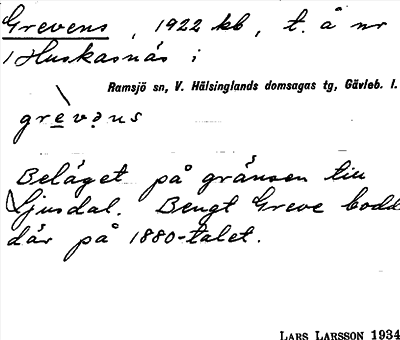 Grevens, 1922 kb, t. å nr
1 Huskasnäs i
Ramsjö sn, V. Hälsinglands domsagas tg, Gävleb. l.
grèvəns
Beläget på gränsen till
Ljusdal. Bengt Greve bodd
där på 1880-talet.
LARS LARSSON 1934